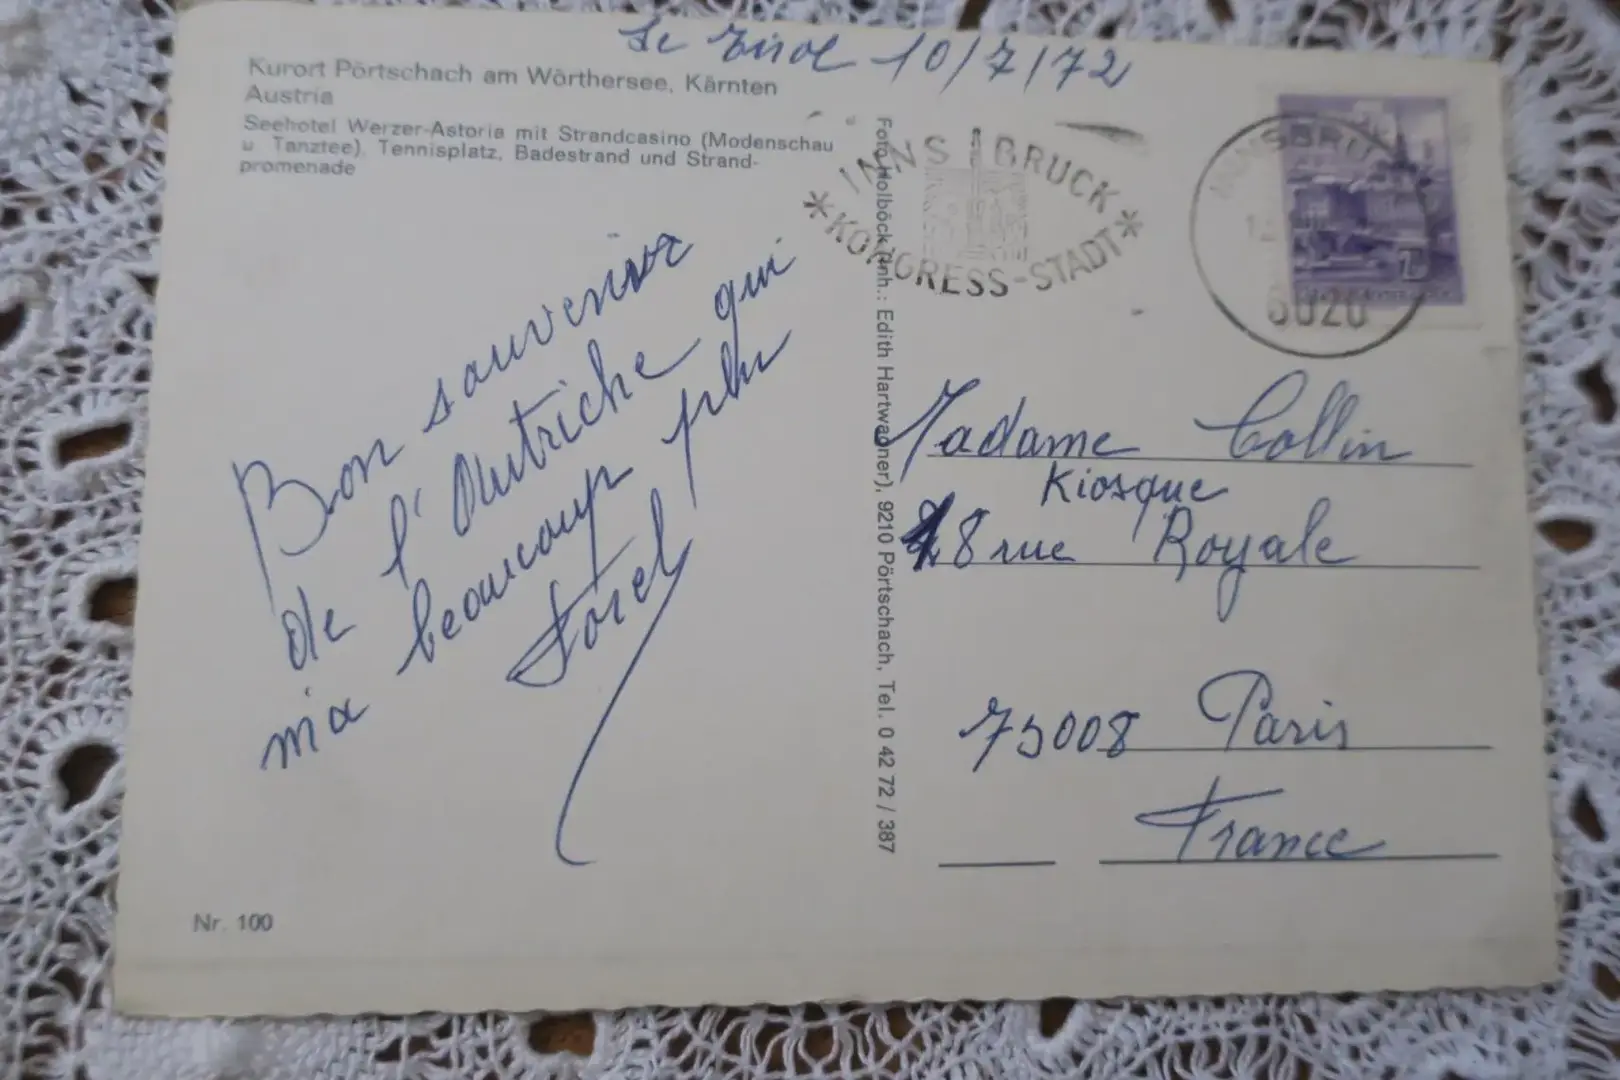 Le Tirol 10/7/72
Kurort Pörtschach am Wörthersee, Kärnten
Austria
Seehotel Werzer-Astoria mit Strandcasino (Modenschau
u Tanztee), Tennisplatz, Badestrand und Strand-
promenade
Bon souvenir
de l'Autriche qui
mia beaucoup plu
Nr. 100
Foto Holböck (Inh.: Edith Hartwagner), 9210 Pörtschach, Tel. 0 42 72 / 387
* INNSBRUCK *
KONGRESS-STADT
INNSBRUCK
6020
Madame Collin
Kiosque
18 rue Royale
75008 Paris
France